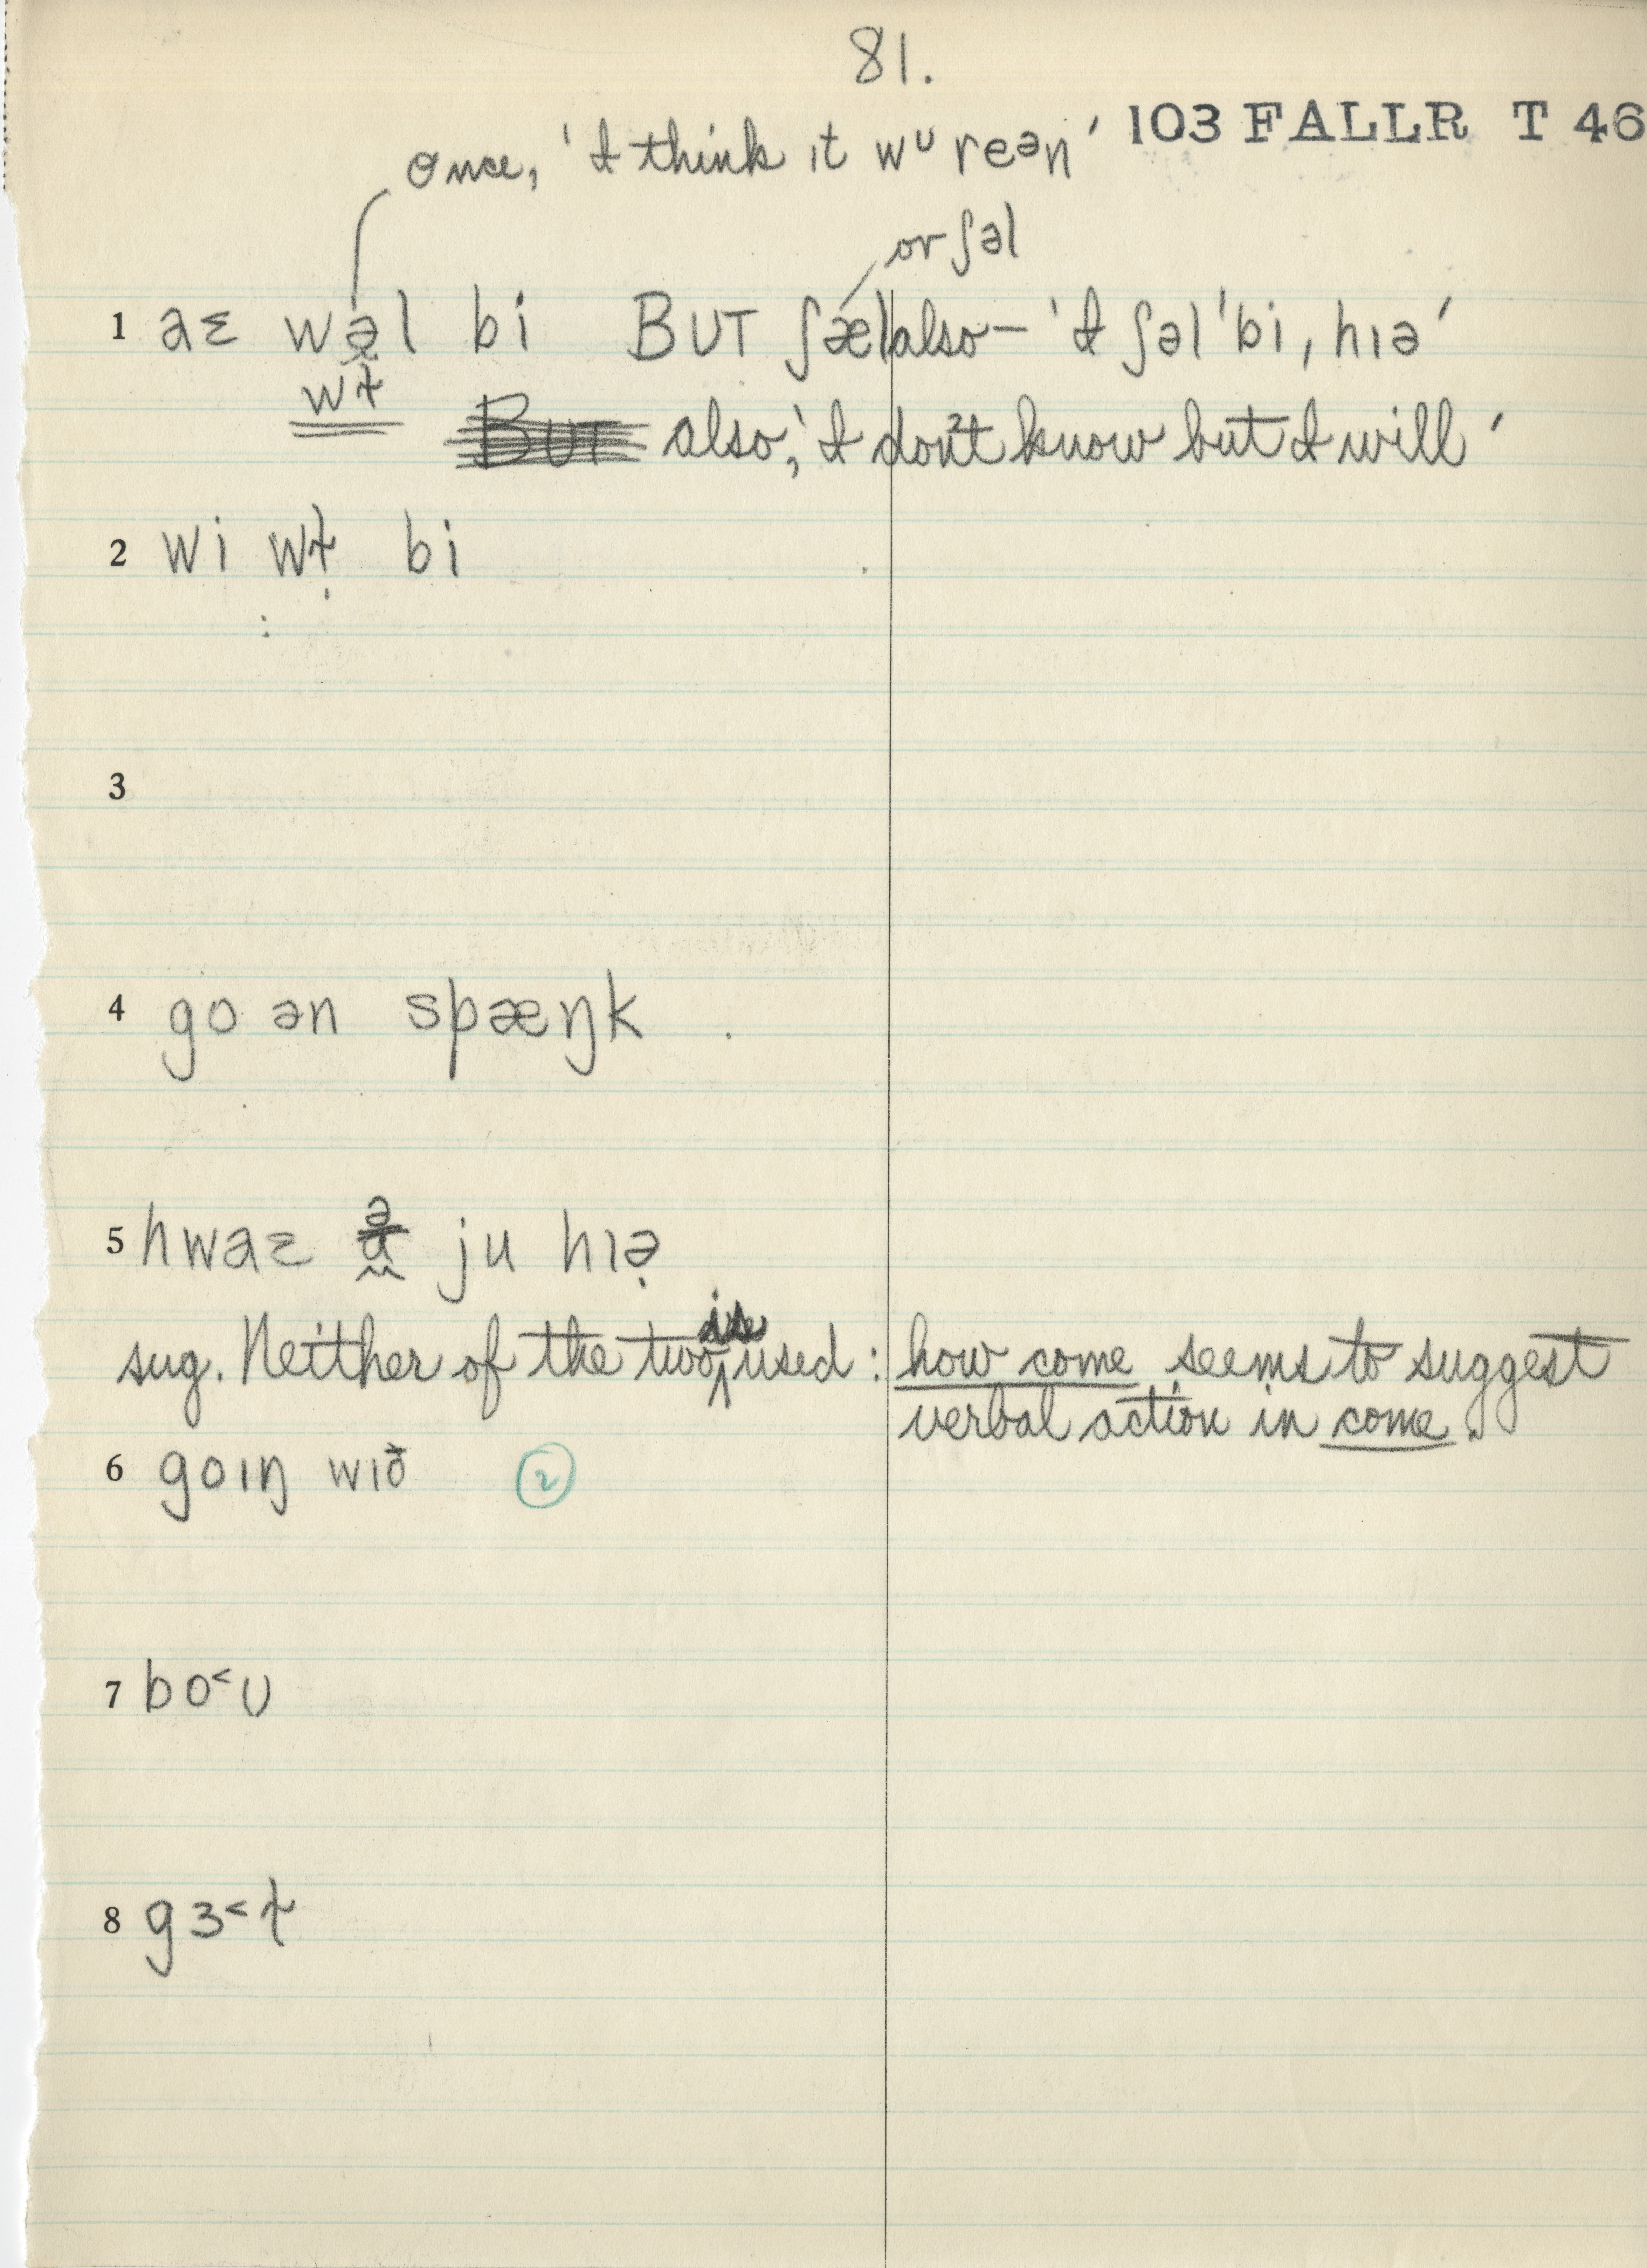 81.
103 FALLR T 46
Once, 'I think it wᴜ reən'
or ʃəl
1 aɛ wəl bi BUT ʃæl also – 'I ʃəl ˈbi, hɪə'
wɫ
also, 'I don't know but I will'
2 wi wɫ bi
3
4 go ən spæŋk
5 hwaɛ ə ju hɪə̣
sug. Neither of the two is used: how come seems to suggest
verbal action in come.
6 goɪŋ wɪð 2
7 bo˂ʊ
8 gɜ˂ɫ